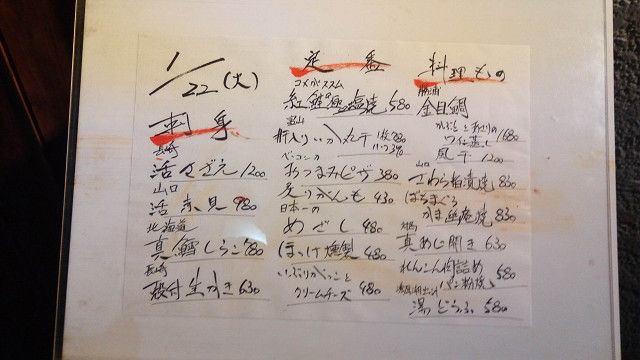 1/22(火)
刺身
長崎
活さざえ 1200
山口
活 980
北海道
真鱈しらこ 780
長崎
殻付生がき 630
定番
コメがススム
紅鮭 塩焼 580
富山
肝入りいか丸干
ベーコンの
おつまみピザ 380
炙りがんも 430
日本一の
めざし 480
ほっけ燻製 480
いぶりがっこと
クリームチーズ 480
料理もの
金目鯛
かぶと
風干 1200
山口
さわら粕漬焼 880
ばちまぐろ
かま塩焼 830
真あじ開き 630
れんこん肉詰め
パン粉焼 580
湯どうふ 580